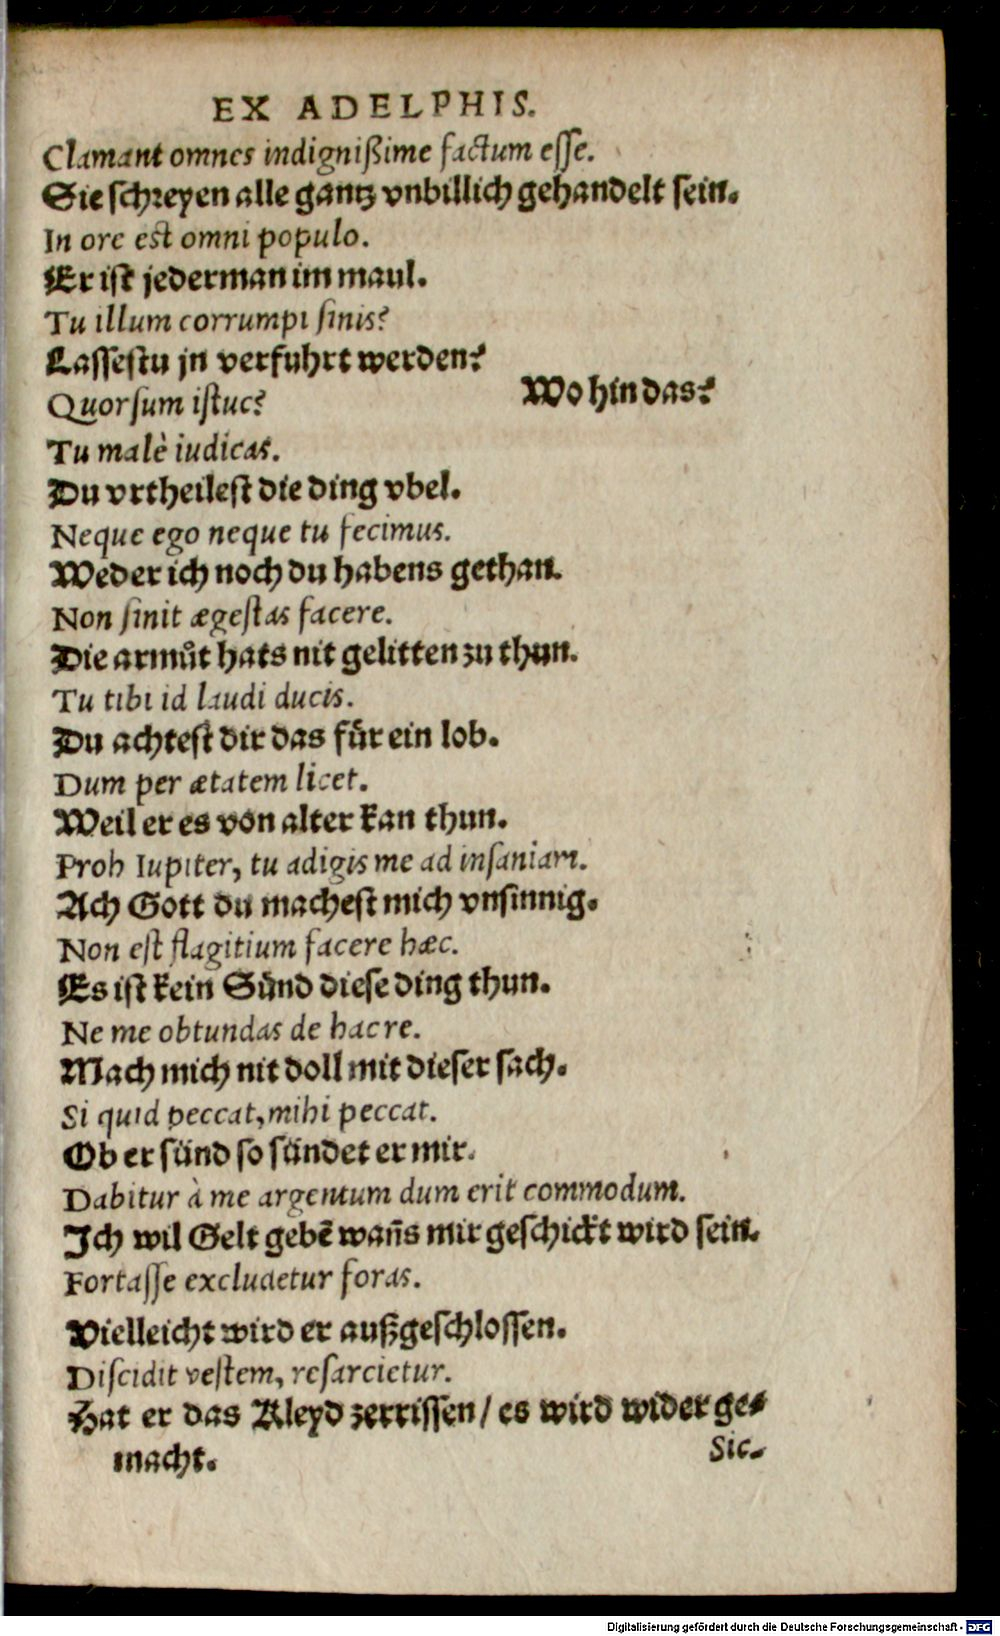 EX ADELPHIS.
Clamant omnes indignißime factum esse.
Sie schreyen alle gantz vnbillich gehandelt sein.
In ore est omni populo.
Er ist jederman im maul.
Tu illum corrumpi sinis?
Lassestu jn verfuhrt werden?
Quorsum istuc? Wo hin das?
Tu malè iudicas.
Du vrtheilest die ding vbel.
Neque ego neque tu fecimus.
Weder ich noch du habens gethan.
Non sinit ægestas facere.
Die armůt hats nit gelitten zu thun.
Tu tibi id laudi ducis.
Du achtest dir das für ein lob.
Dum per ætatem licet.
Weil er es von alter kan thun.
Proh Iupiter, tu adigis me ad insaniam.
Ach Gott du machest mich vnsinnig.
Non est flagitium facere hæc.
Es ist kein Sünd diese ding thun.
Ne me obtundas de hac re.
Mach mich nit doll mit dieser sach.
Si quid peccat, mihi peccat.
Ob er sünd so sündet er mir.
Dabitur à me argentum dum erit commodum.
Ich wil Gelt gebẽ wañs mir geschickt wird sein.
Fortasse excludetur foras.
Vielleicht wird er außgeschlossen.
Discidit vestem, resarcietur.
Hat er das Kleyd zerrissen / es wird wider ge-
macht. Sic-
Digitalisierung gefördert durch die Deutsche Forschungsgemeinschaft - DFG